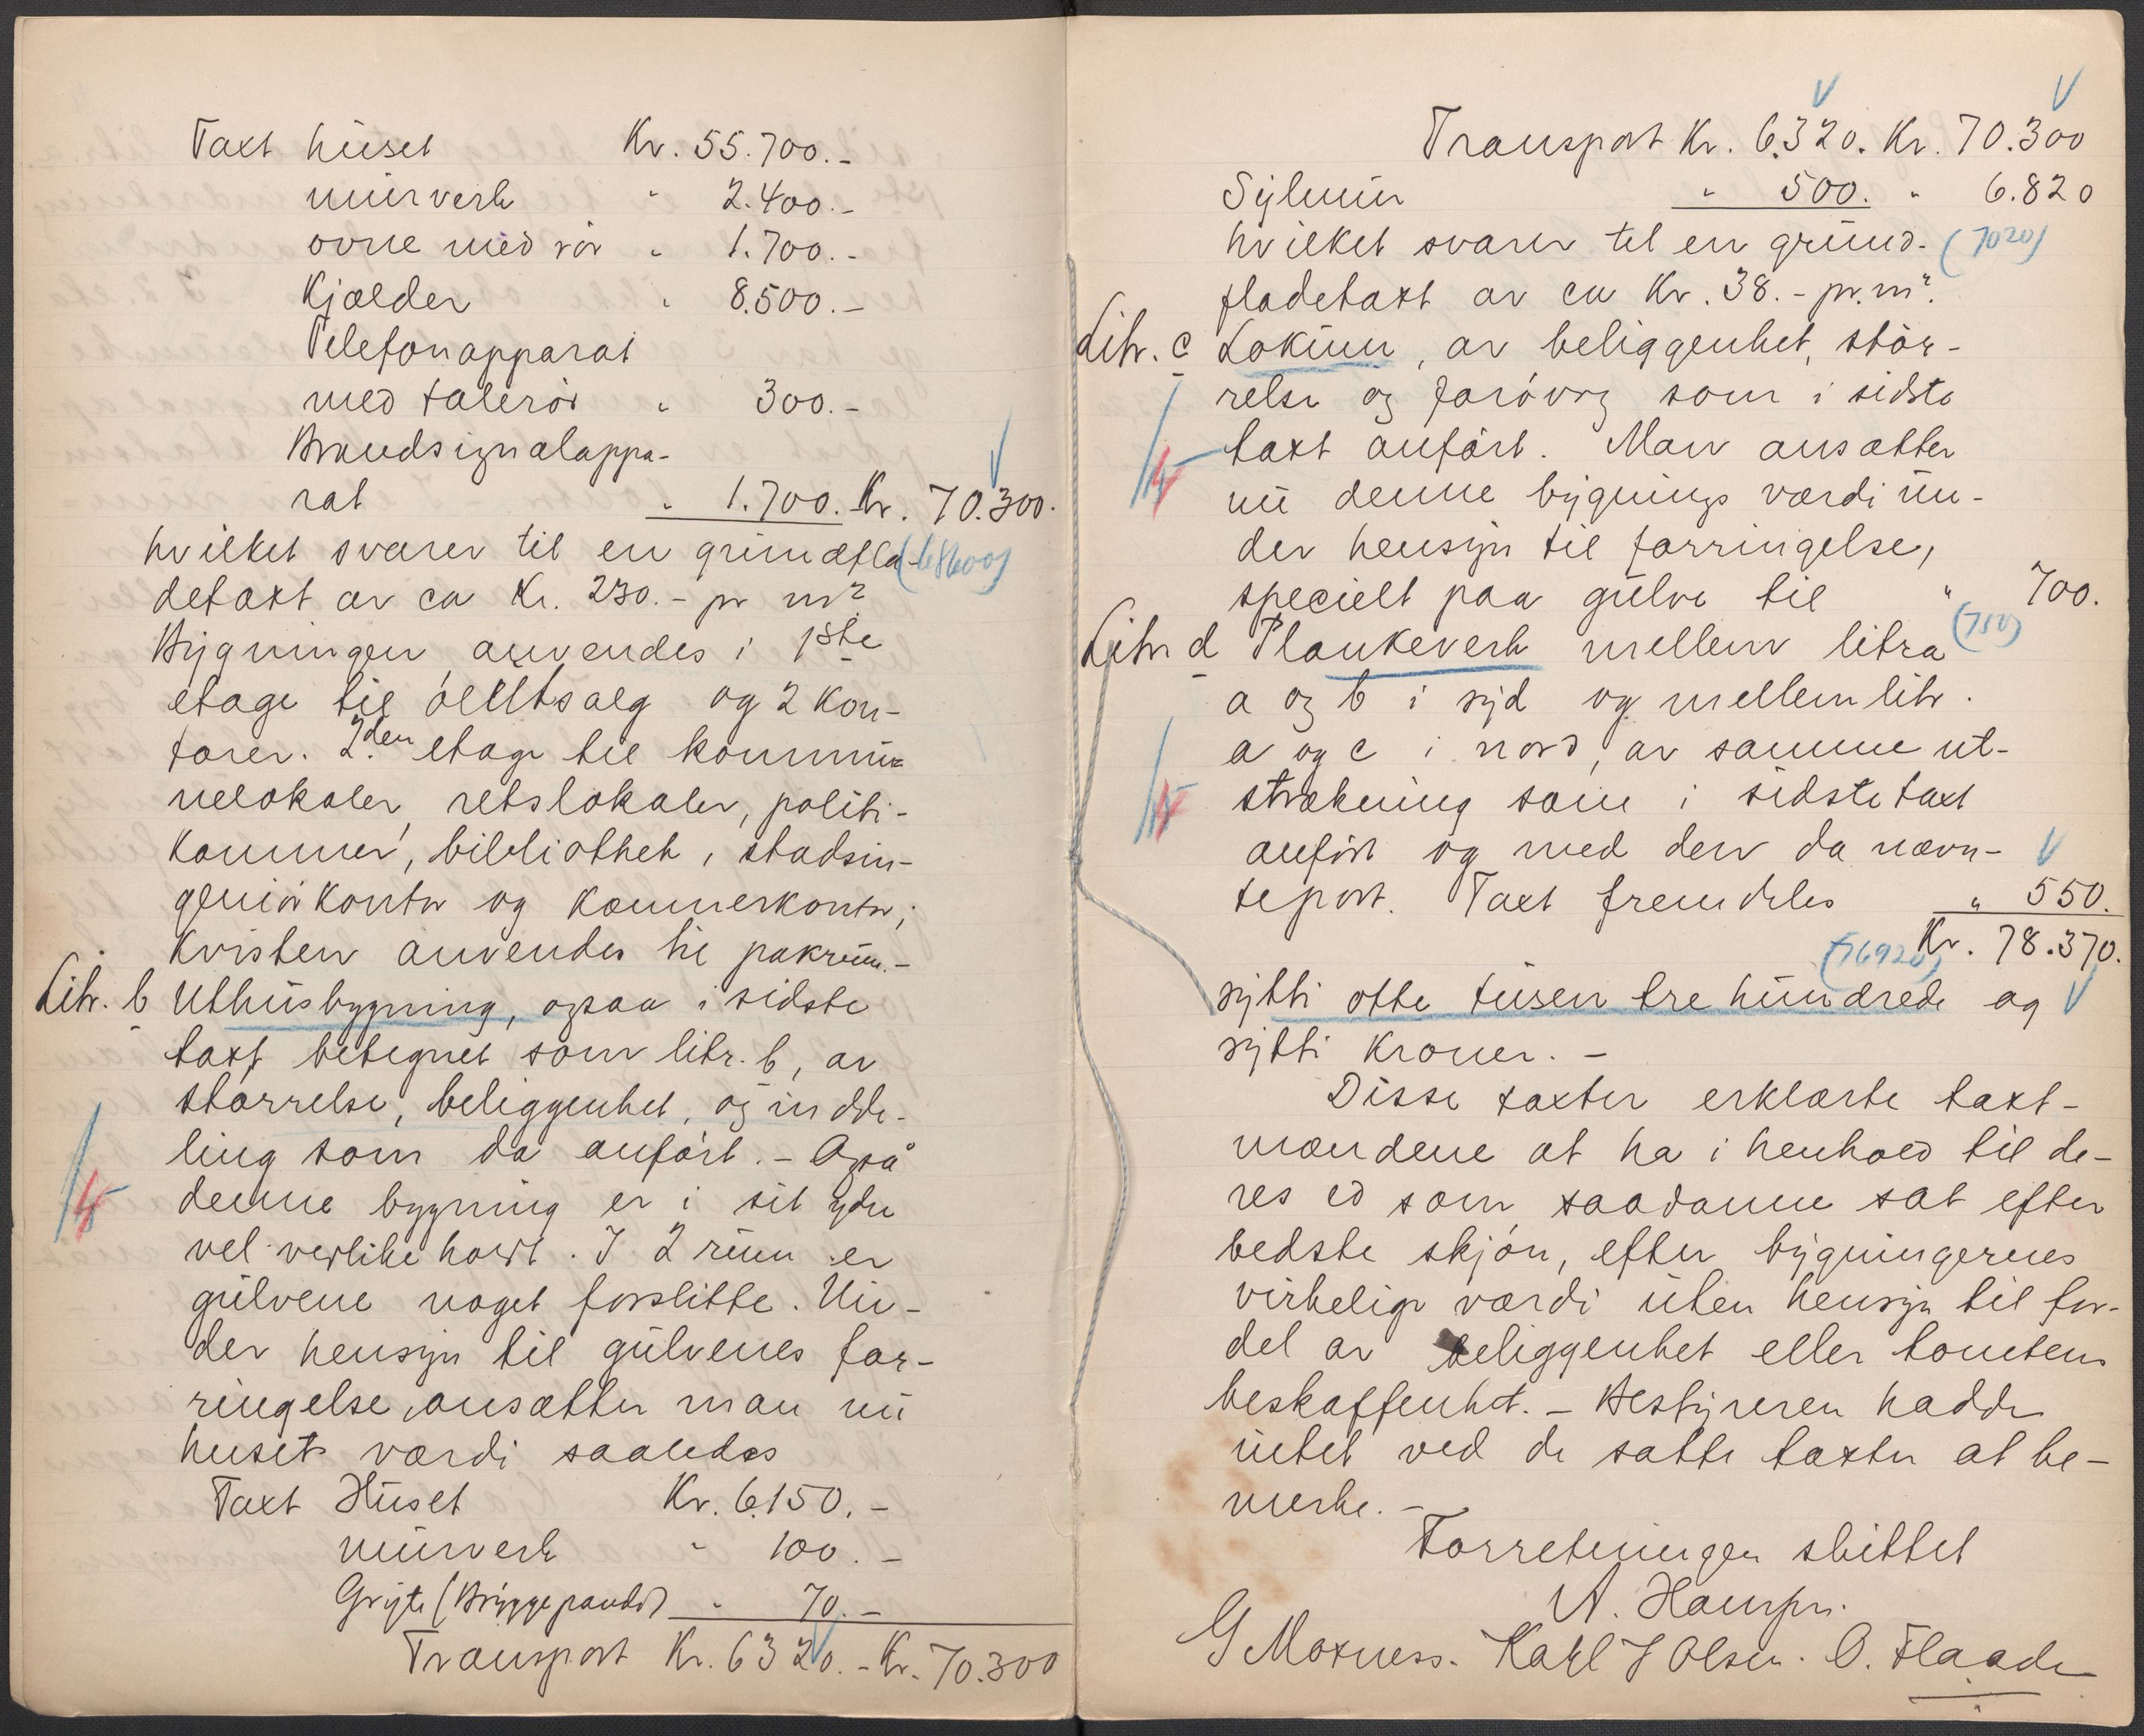 Taxt huset Kr. 55.700.-
murverk " 2.400.-
ovne med rör " 1.700.-
Kjælder " 8.500.-
Telefonapparat
med talerör " 300.-
Brandsignalappa-
rat " 1.700. Kr. 70.300.
hvilket svarer til en grundfla- (68600)
detaxt av ca Kr. 230.- pr m²
Bygningen anvendes i 1ste
etage til og 2 kon-
torer. 2den etage til kommu-
nelokaler, retslokaler, politi-
kammer, bibliothek, stadsin-
geniörkontor og kæmnerkontor;
Kvisten anvendes til pakrum.-
Litr. b Uthusbygning, ogsaa i sidste
taxt betegnet som litr. b, av
störrelse, beliggenhet, og indde-
ling som da anfört. - Også
denne bygning er i sit ydre
vel vedlikeholdt. I 2 rum er
gulvene noget forslitte. Un-
der hensyn til gulvenes for-
ringelse, ansætter man nu
husets værdi saaledes
Taxt Huset Kr. 6.150.-
murverk " 100.-
Gryte (Bryggepande) " 70.-
Transport Kr. 6320.- Kr. 70.300
Transport Kr. 6.320. Kr. 70.300
Sylmur " 500. " 6.820
hvilket svarer til en grund- (7020)
fladetaxt av ca Kr. 38.- pr. m².
Litr. c Lokum, av beliggenhet, stör-
relse og forövrig som i sidste
taxt anfört. Man ansætter
nu denne bygnings værdi un-
der hensyn til forringelse,
specielt paa gulve til " 700.
(750)
Litr d Plankeverk mellem litra
a og b i syd og mellem litr.
a og c i nord, av samme ut-
strækning som i sidste taxt
anfört og med den da nævn-
te port. Taxt fremdeles " 550.
Kr. 78.370.
(76920)
sytti otte tusen tre hundrede og
sytti Kroner. -
Disse taxter erklærte taxt-
mændene at ha i henhold til de-
res ed som saadanne sat efter
bedste skjön, efter bygningernes
virkelige værdi uten hensyn til for-
del av beliggenhet eller tomtens
beskaffenhet. - Bestyreren hadde
intet ved de satte taxter at be-
merke. -
Forretningen sluttet
G Moxness. Karl J Olsen. O. Flaade